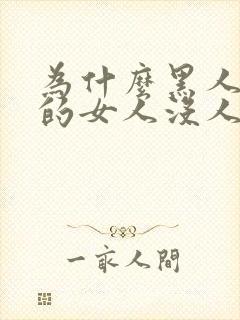 為什麼黑人
的女人沒人
一家人間